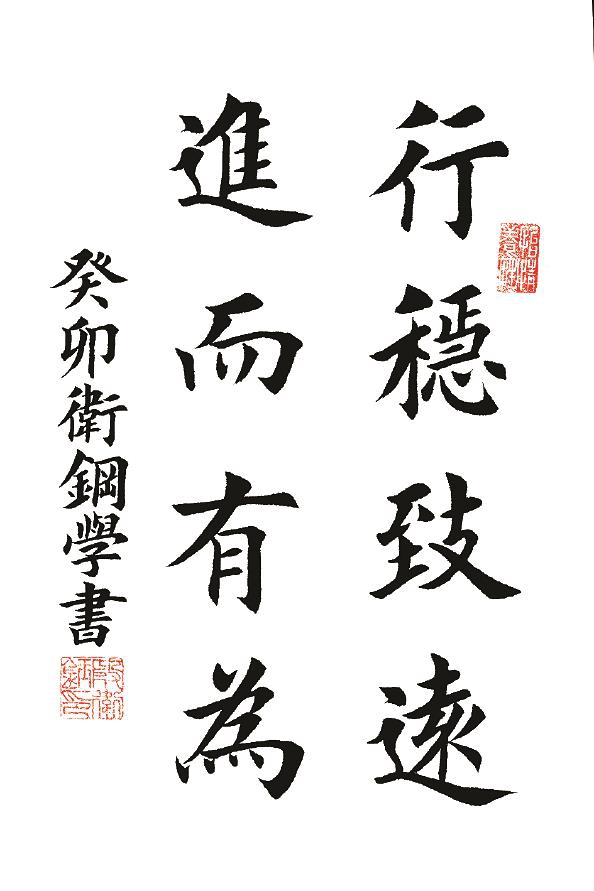 行穩致遠
進而有為
癸卯衛鋼學書